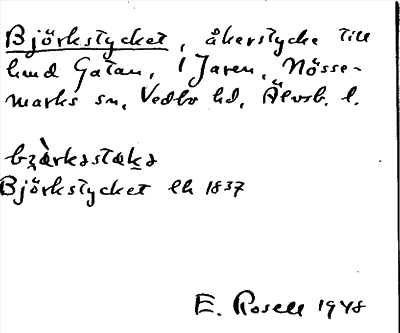 Björkstycket, åkerstycke till
hmd Gatan, i Jaren, Nösse-
marks sn, Vedbo hd, Älvsb. l.
Björkstycket lh 1837
E. Rosell 1948